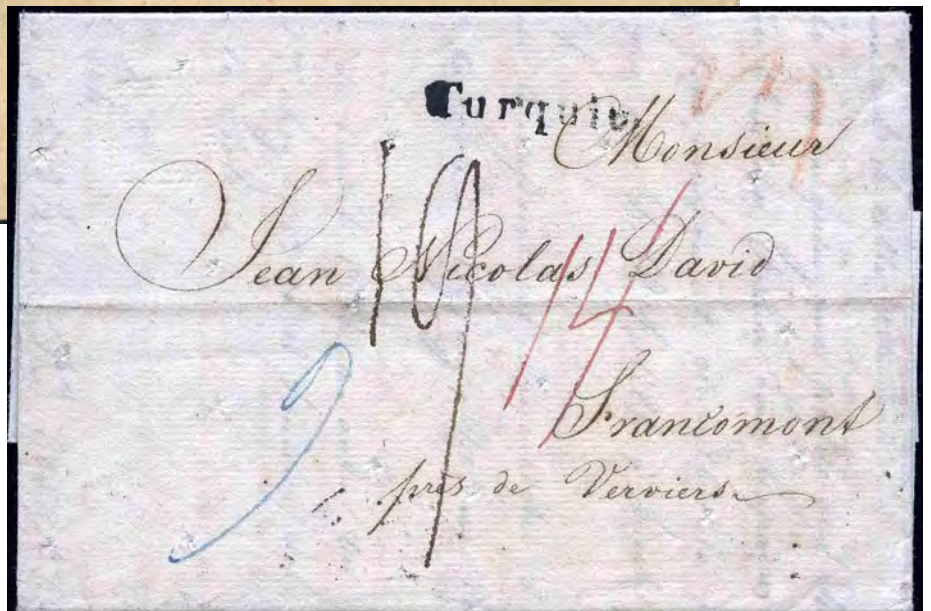 Turquie
Monsieur
Jean Nicolas David
19
14
Francomont
près de Verviers